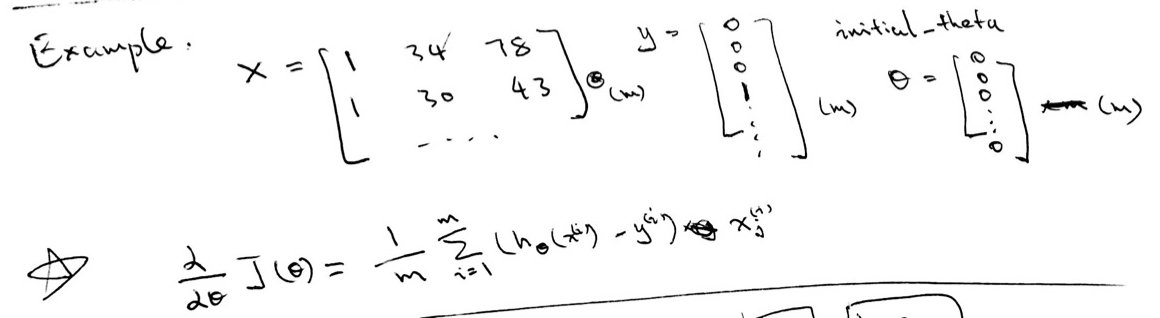 Example.
X = [1 34 78; 1 30 43; ....] (m) y = [0 0 0 1 ⋮] (m) initial_theta θ = [0 0 0 ⋮ 0] (m)
☆ ∂/∂θ J(θ) = 1/m Σ_{i=1}^{m} (h_θ(x^(i)) - y^(i)) x_j^(i)